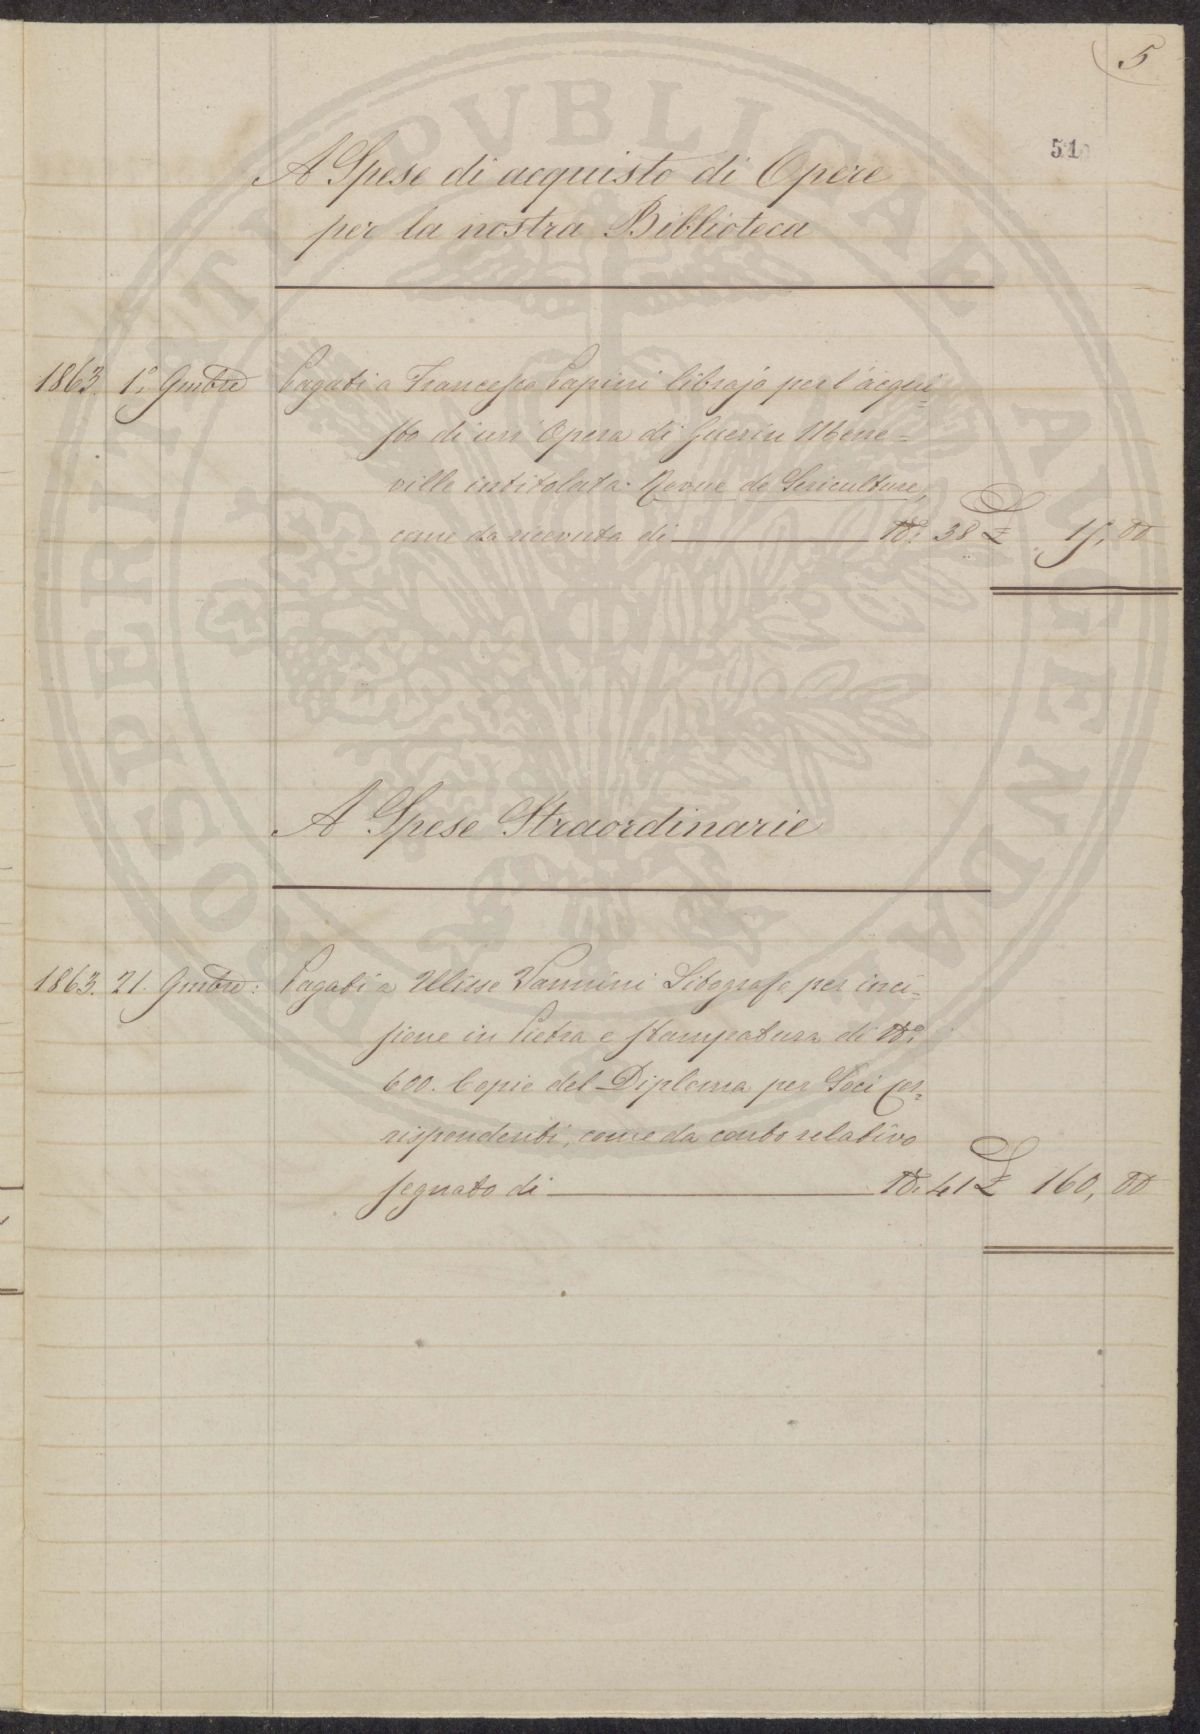 5
51
A Spese di acquisto di Opere
per la nostra Biblioteca
1863. 1.° 9mbre Pagati a Francesco Papini librajo per l'acqui=
sto di un' Opera di Guerin Mene=
ville intitolata: Revue de Sericulture,
come da ricevuta di N.° 38 £ 15,00
A Spese Straordinarie
1863. 21. 9mbre: Pagati a Ulisse Vannini Litografo per inci=
sione in Pietra e stampatura di N.°
600. Copie del Diploma per Soci Cor=
rispondenti, come da conto relativo
segnato di N.° 41 £ 160,00
PROSPERITATI PVBLICAE AVGENDAE